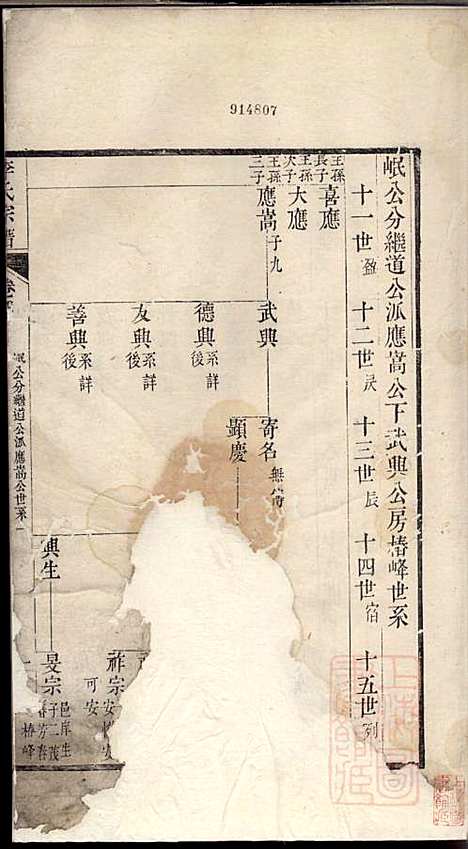 914807
岷公分繼道公派應嵩公下武興公房椿峰世系
十一世盈 十二世昃 十三世辰 十四世宿 十五世列
王孫長子 喜應
王孫次子 大應
王孫三子 應嵩 子九
武興
寄名
顯慶
德興 系詳後
友興 系詳後
善興 系詳後
興生
祚宗
可安
旻宗
邑庠生
椿峰
氏宗譜
岷公分繼道公派應嵩公世系 一